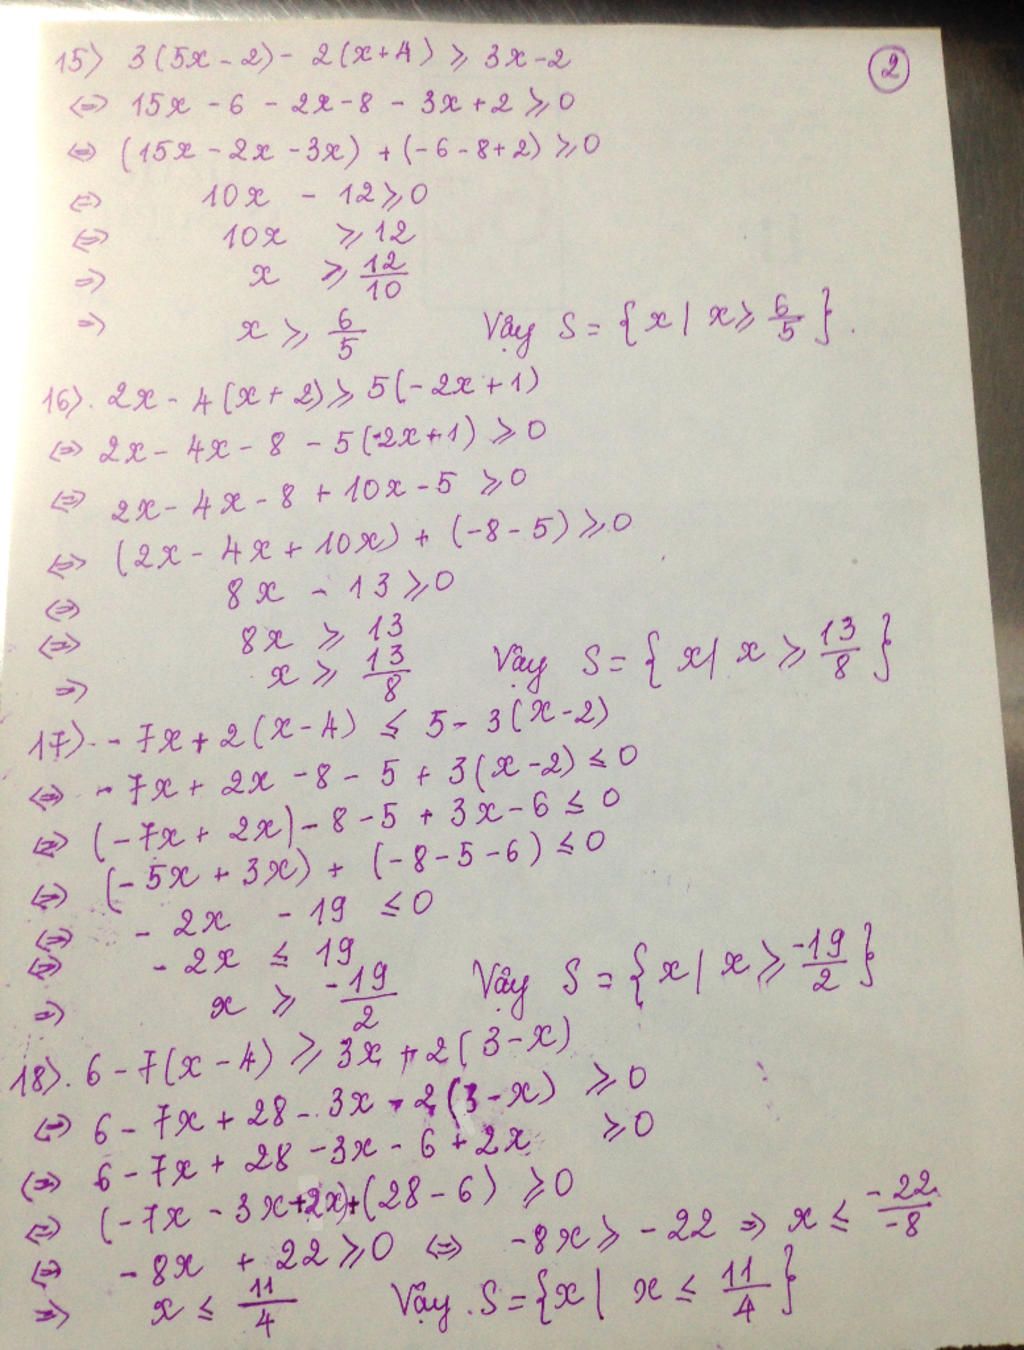 ②
15) 3(5x - 2) - 2(x+4) ⩾ 3x - 2
⇔ 15x - 6 - 2x - 8 - 3x + 2 ⩾ 0
⇔ (15x - 2x - 3x) + (-6 - 8 + 2) ⩾ 0
⇔ 10x - 12 ⩾ 0
⇔ 10x ⩾ 12
⇒ x ⩾ 12/10
⇒ x ⩾ 6/5 Vậy S = {x | x ⩾ 6/5}.
16). 2x - 4(x + 2) ⩾ 5(-2x + 1)
⇔ 2x - 4x - 8 - 5(-2x+1) ⩾ 0
⇔ 2x - 4x - 8 + 10x - 5 ⩾ 0
⇔ (2x - 4x + 10x) + (-8 - 5) ⩾ 0
⇔ 8x - 13 ⩾ 0
⇔ 8x ⩾ 13
⇒ x ⩾ 13/8 Vậy S = {x | x ⩾ 13/8}
17). -7x + 2(x - 4) ≤ 5 - 3(x - 2)
⇔ -7x + 2x - 8 - 5 + 3(x - 2) ≤ 0
⇔ (-7x + 2x) - 8 - 5 + 3x - 6 ≤ 0
⇔ (-5x + 3x) + (-8 - 5 - 6) ≤ 0
⇔ -2x - 19 ≤ 0
⇔ -2x ≤ 19
⇒ x ⩾ -19/2 Vậy S = {x | x ⩾ -19/2}
18). 6 - 7(x - 4) ⩾ 3x + 2(3 - x)
⇔ 6 - 7x + 28 - 3x - 2(3 - x) ⩾ 0
⇔ 6 - 7x + 28 - 3x - 6 + 2x ⩾ 0
⇔ (-7x - 3x + 2x) + (28 - 6) ⩾ 0
⇔ -8x + 22 ⩾ 0 ⇔ -8x ⩾ -22 ⇒ x ≤ -22/-8
⇒ x ≤ 11/4 Vậy. S = {x | x ≤ 11/4}